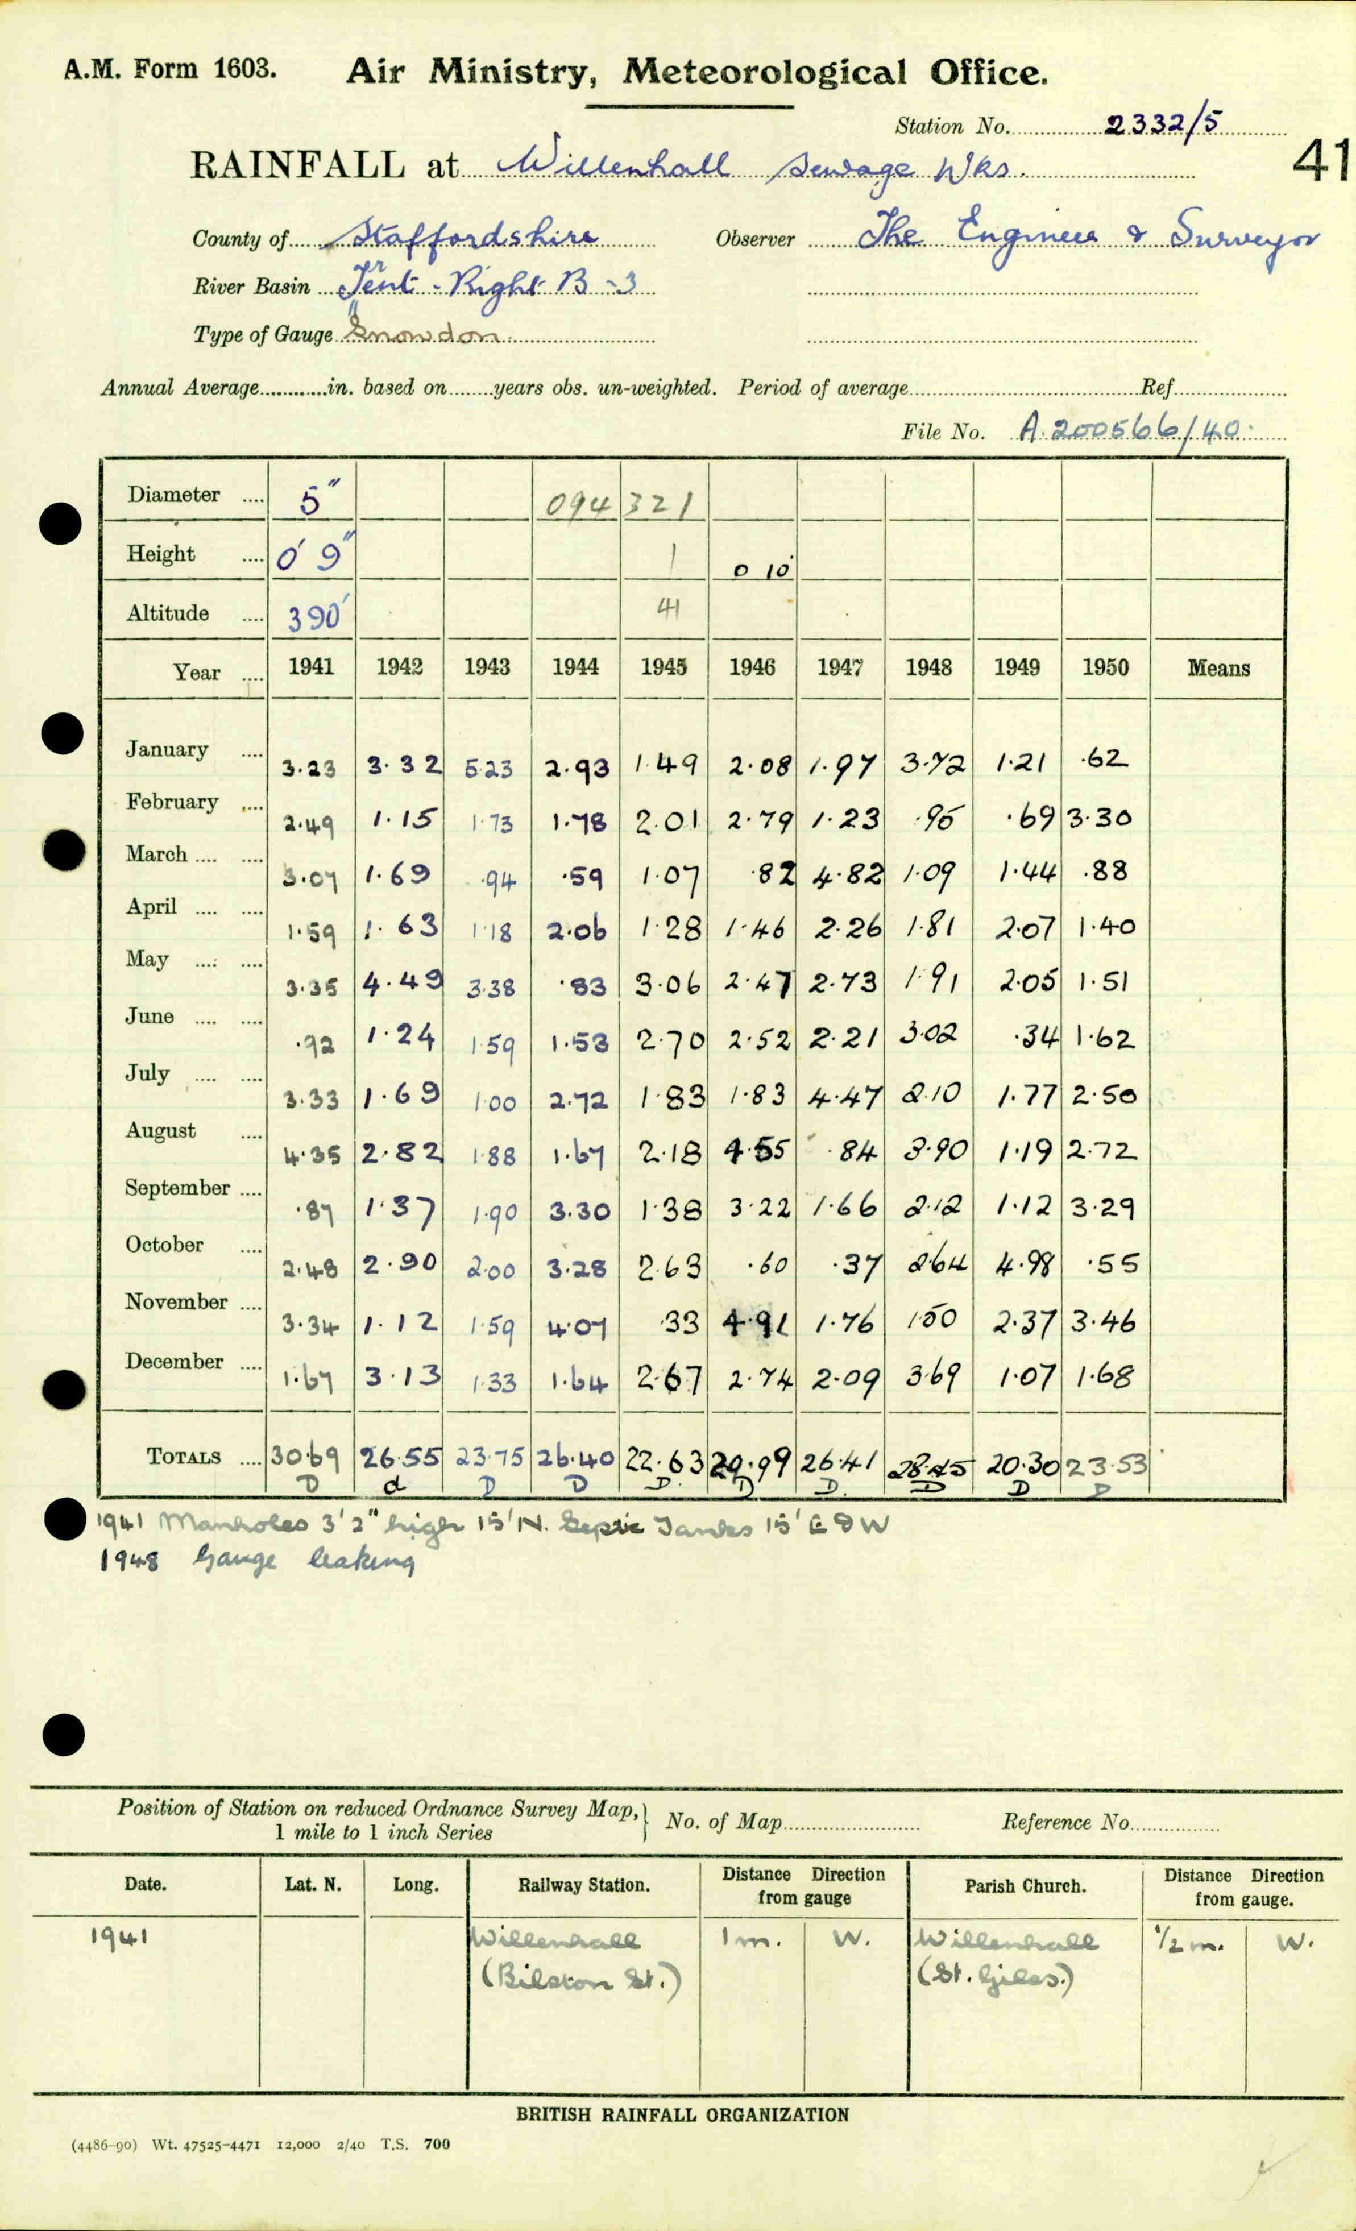 A.M. Form 1603. Air Ministry, Meteorological Office.
Station No. 2332/5
41
RAINFALL at Willenhall Sewage Wks.
County of Staffordshire Observer The Engineer & Surveyor
River Basin Trent - Right B -3
Type of Gauge Snowdon
Annual Average in. based on years obs. un-weighted. Period of average Ref
File No. A.200566/40.
Diameter .... 5" 094 321
Height .... 0' 9" 1 0 10
Altitude .... 390' 41
Year .... 1941 1942 1943 1944 1945 1946 1947 1948 1949 1950 Means
January .... 3.23 3.32 5.23 2.93 1.49 2.08 1.97 3.72 1.21 .62
February .... 2.49 1.15 1.73 1.78 2.01 2.79 1.23 .95 .69 3.30
March .... .... 3.07 1.69 .94 .59 1.07 .82 4.82 1.09 1.44 .88
April .... .... 1.59 1.63 1.18 2.06 1.28 1.46 2.26 1.81 2.07 1.40
May .... .... 3.35 4.49 3.38 .83 3.06 2.47 2.73 1.91 2.05 1.51
June .... .... .92 1.24 1.59 1.53 2.70 2.52 2.21 3.02 .34 1.62
July .... .... 3.33 1.69 1.00 2.72 1.83 1.83 4.47 2.10 1.77 2.50
August .... 4.35 2.82 1.88 1.67 2.18 4.55 .84 3.90 1.19 2.72
September .... .87 1.37 1.90 3.30 1.38 3.22 1.66 2.12 1.12 3.29
October .... 2.48 2.90 2.00 3.28 2.63 .60 .37 2.64 4.98 .55
November .... 3.34 1.12 1.59 4.07 .33 4.91 1.76 1.50 2.37 3.46
December .... 1.67 3.13 1.33 1.64 2.67 2.74 2.09 3.69 1.07 1.68
TOTALS .... 30.69 26.55 23.75 26.40 22.63 29.99 26.41 28.45 20.30 23.53
D d D D D. D D. D D D
1941 Manholes 3'2" high 15' N. Septic Tanks 15' E & W
1948 Gauge leaking
Position of Station on reduced Ordnance Survey Map, 1 mile to 1 inch Series } No. of Map Reference No.
Date. Lat. N. Long. Railway Station. Distance Direction from gauge Parish Church. Distance Direction from gauge.
1941 Willenhall 1 m. W. Willenhall 1/2 m. W.
(Bilston St.) (St. Giles.)
BRITISH RAINFALL ORGANIZATION
(4486-90) Wt. 47525-4471 12,000 2/40 T.S. 700